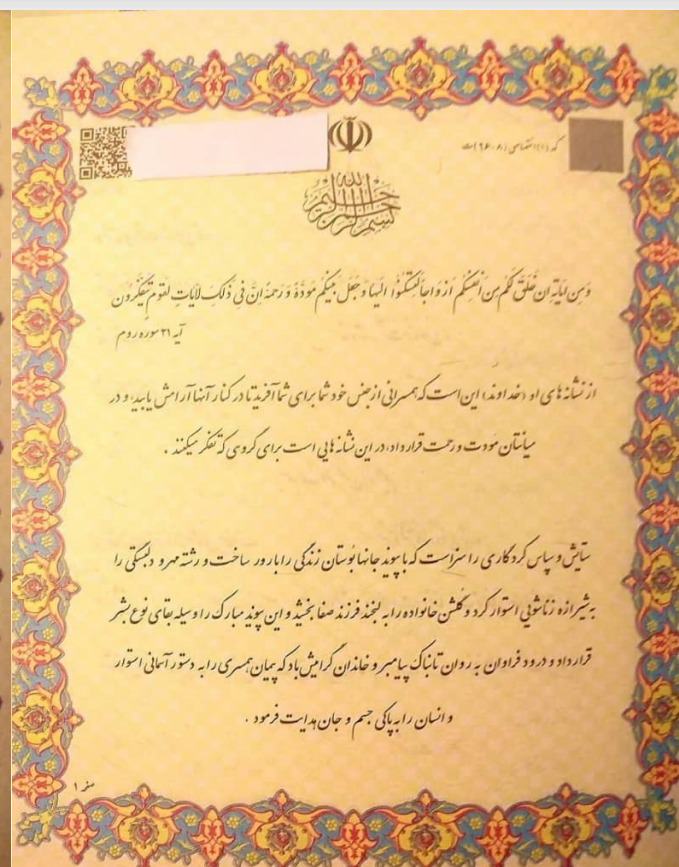 کد (۱) اختصاصی (۹۶۰۸) ت
بسم الله الرحمن الرحیم
وَمِن ایاتِهِ ان خَلَقَ لَکُم مِن اَنفُسِکُم اَزواجاً لِتَسکُنُوا اِلَیها وَ جَعَلَ بَینَکُم مَوَدَّةً وَ رَحمَةً اِنَّ فی ذلِکَ لَایاتٍ لِقَومٍ یَتَفَکَّرُونَ
آیه ۲۱ سوره روم
از نشانه های او (خداوند) این است که همسرانی از جنس خود شما برای شما آفرید تا در کنار آنها آرامش یابید، و در
میانتان مودت و رحمت قرار داد، در این نشانه هایی است برای گروهی که تفکر میکنند .
ستایش و سپاس کردگاری را سزاست که با پیوند جانها بوستان زندگی را بارور ساخت و رشته مهر و دلبستگی را
به شیرازه زناشویی استوار کرد و گلشن خانواده را به لبخند فرزند صفا بخشید و این پیوند مبارک را وسیله بقای نوع بشر
قرار داد و درود فراوان به روان تابناک پیامبر و خاندان گرامیش باد که پیمان همسری را به دستور آسمانی استوار
و انسان را به پاکی جسم و جان هدایت فرمود .
صفحه ۱